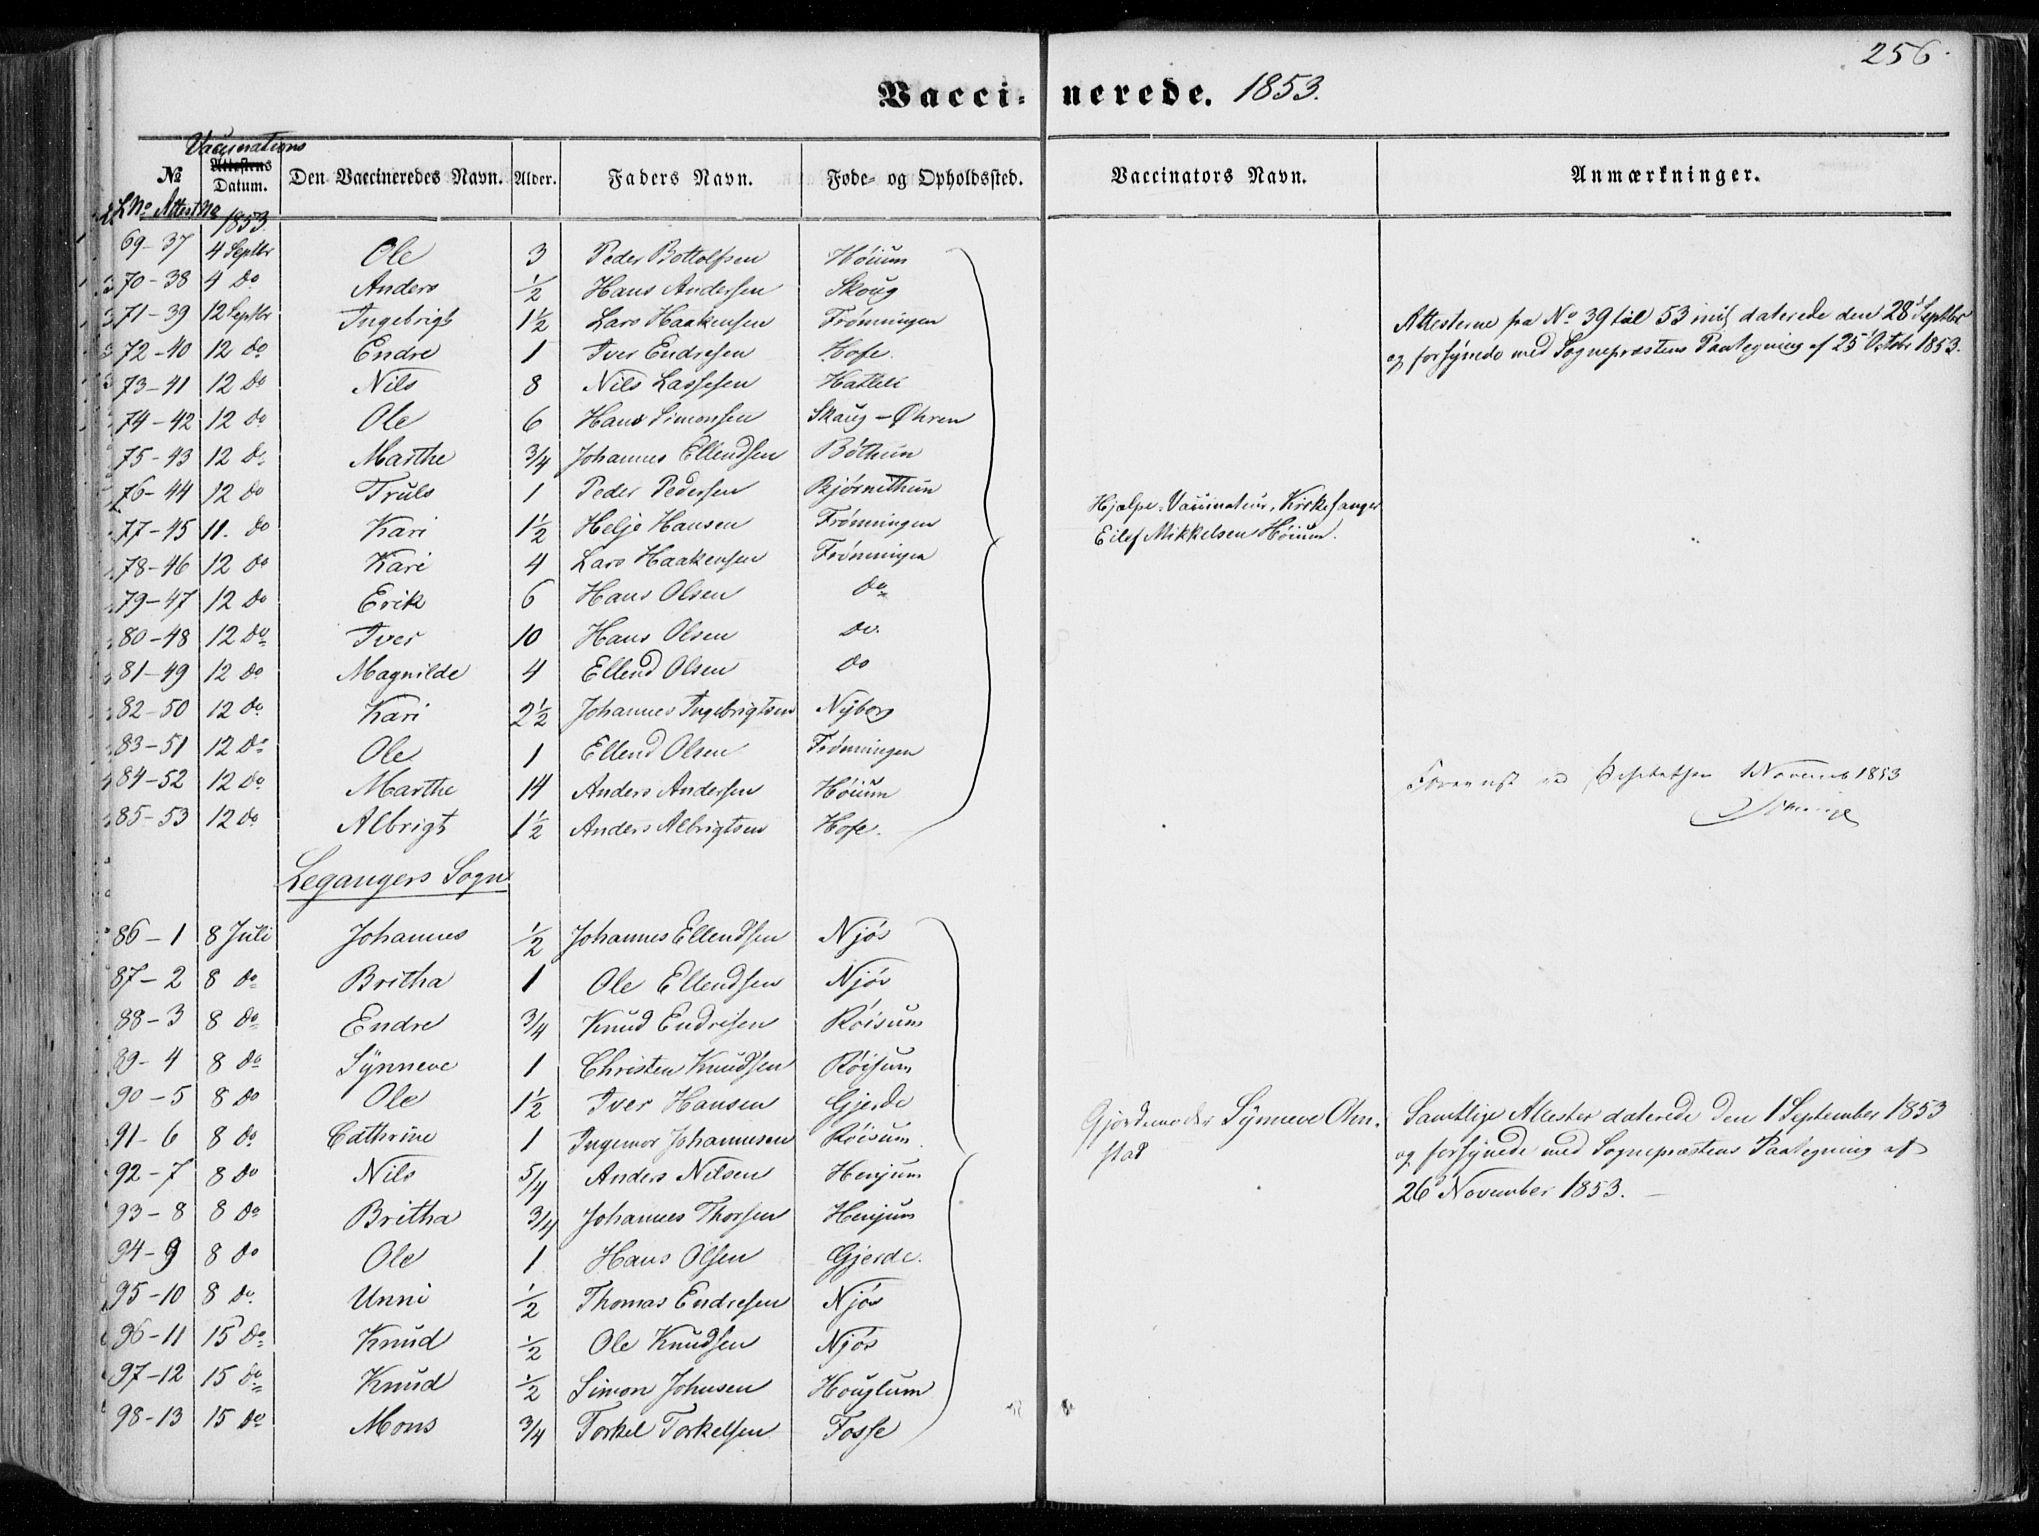 256
Vacci- nerede. 1853.
Vaccinations
№ Attestens Datum. Den Vaccineredes Navn. Alder. Faders Navn. Føde- og Opholdssted. Vaccinators Navn. Anmærkninger.
L No Attest No 1853.
69-37 4 Septbr Ole 3 Peder Bottolfsen Høium
70-38 4 do Anders ½ Hans Andersen Skoug
71-39 12 Septbr Ingebrigt 1½ Lars Haakensen Frønningen
72-40 12 do Endre 1 Iver Endresen Hofe.
73-41 12 do Nils 8 Nils Lassesen Hatleli
74-42 12 do Ole 6 Hans Simonsen Skaug - Øhren
75-43 12 do Marthe ¾ Johannes Ellendsen Bøthun
76-44 12 do Truls 1 Peder Pedersen Bjørnethun
77-45 11. do Kari 1½ Helje Hansen Frønningen
78-46 12 do Kari 4 Lars Haakensen Frønningen
79-47 12 do Erik 6 Hans Olsen do
80-48 12 do Iver 10 Hans Olsen do.
81-49 12 do Magnilde 4 Ellend Olsen do
82-50 12 do Kari 2½ Johannes Ingebrigtsen Nyborg
83-51 12 do Ole 1 Ellend Olsen Frønningen
84-52 12 do Marthe 14 Anders Andersen Høium
85-53 12 do Albrigt 1½ Anders Albrigtsen Hofe.
Attesterne fra No 39 til 53 daterede den 28d Septbr
og forsynede med Sognepræstens Paategning af 25 Octobr 1853.
Hjælpe-Vaccinateur, Kirkesanger
Eilef Mikkelsen Høium.
1 Novemb 1853
Legangers Sogn
86-1 8 Juli Johannes ½ Johannes Ellendsen Njøs
87-2 8 do Britha 1 Ole Ellendsen Njøs
88-3 8 do Endre ¾ Knud Endresen Røisum
89-4 8 do Synneve 1 Christen Knudsen Røisum
90-5 8 do Ole 1½ Iver Hansen Gjerde
91-6 8 do Cathrine 1 Ingemor Johannesen Røisum.
92-7 8 do Nils 5/4 Anders Nilsen Henjum
93-8 8 do Britha ¾ Johannes Thorsen Henjum
94-9 8 do Ole 1 Hans Olsen Gjerde.
95-10 8 do. Unni ½ Thomas Endresen Njøs
96-11 15 do Knud ½ Ole Knudsen Njøs
97-12 15 do Knud ½ Simon Johnsen Houglum
98-13 15 do Mons ¾ Torkel Torkelsen Fosse
Gjordemoder Synneve Olm-
stad
Samtlige Attester daterede den 1 September 1853
og forsynede med Sognepræstens Paategning af
26d November 1853. -